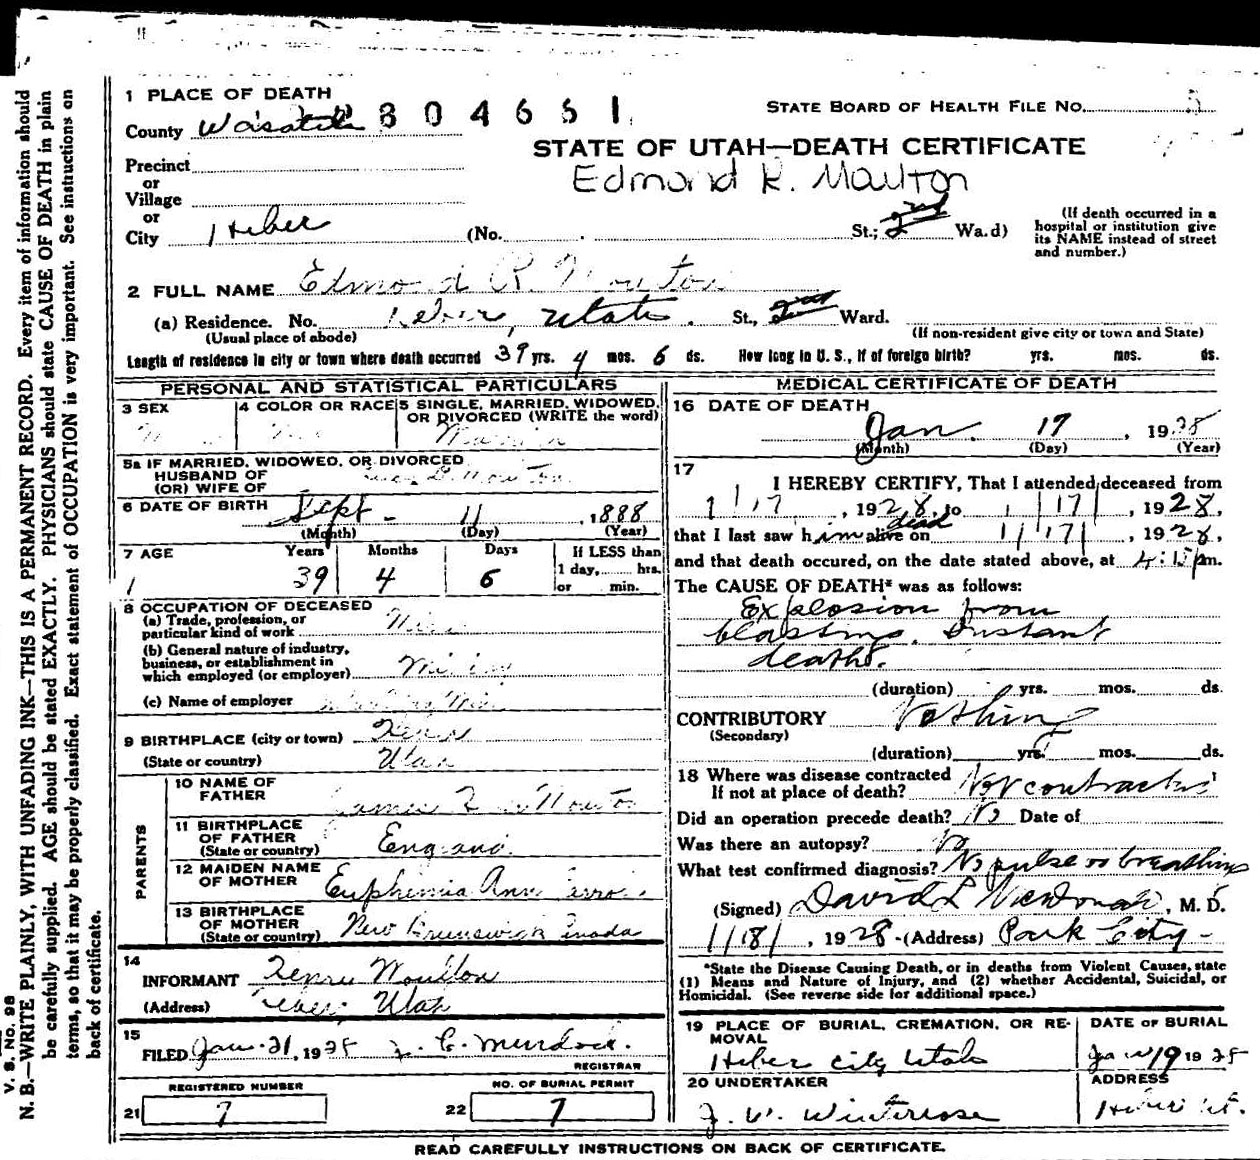 1 PLACE OF DEATH
County Wasatch 304661
STATE BOARD OF HEALTH FILE NO. 5
STATE OF UTAH—DEATH CERTIFICATE
Edmond R. Moulton
Precinct
or
Village
or
City Heber (No. St.; 2nd Wa.d)
(If death occurred in a hospital or institution give its NAME instead of street and number.)
2 FULL NAME Edmond R. Mouton
(a) Residence. No. Heber, Utah. St., 2nd Ward.
(Usual place of abode) (If non-resident give city or town and State)
Length of residence in city or town where death occurred 39 yrs. 4 mos. 6 ds. How long in U. S., if of foreign birth? yrs. mos. ds.
PERSONAL AND STATISTICAL PARTICULARS
3 SEX 4 COLOR OR RACE 5 SINGLE, MARRIED, WIDOWED, OR DIVORCED (WRITE the word)
Married
5a IF MARRIED, WIDOWED, OR DIVORCED
HUSBAND OF
(OR) WIFE OF Moulton
6 DATE OF BIRTH Sept - 11, 1888
(Month) (Day) (Year)
7 AGE Years Months Days If LESS than
1 day, hrs.
39 4 6 or min.
8 OCCUPATION OF DECEASED
(a) Trade, profession, or
particular kind of work
(b) General nature of industry,
business, or establishment in
which employed (or employer) Mining
(c) Name of employer
9 BIRTHPLACE (city or town) Heber
(State or country) Utah
PARENTS
10 NAME OF
FATHER Moulton
11 BIRTHPLACE
OF FATHER
(State or country) England
12 MAIDEN NAME
OF MOTHER Euphemia Ann
13 BIRTHPLACE
OF MOTHER
(State or country) New Brunswick Canada
14
INFORMANT Henry Moulton
(Address) Heber Utah
15
FILED Jan. 21, 1928 J. C. Murdock.
REGISTRAR
REGISTERED NUMBER NO. OF BURIAL PERMIT
21 7 22 7
MEDICAL CERTIFICATE OF DEATH
16 DATE OF DEATH
Jan. 17, 1928
(Month) (Day) (Year)
17
I HEREBY CERTIFY, That I attended deceased from
1/17, 1928, to 1/17/, 1928,
that I last saw him alive dead on 1/17/, 1928,
and that death occured, on the date stated above, at 4:15 pm.
The CAUSE OF DEATH* was as follows:
Explosion from
blasting. Instant
death.
(duration) yrs. mos. ds.
CONTRIBUTORY Nothing
(Secondary)
(duration) yrs. mos. ds.
18 Where was disease contracted
If not at place of death? Not contracted
Did an operation precede death? No Date of
Was there an autopsy? No
What test confirmed diagnosis? No pulse or breathing
(Signed) David L McDonald, M. D.
1/18/, 1928 - (Address) Park City -
*State the Disease Causing Death, or in deaths from Violent Causes, state
(1) Means and Nature of Injury, and (2) whether Accidental, Suicidal, or
Homicidal. (See reverse side for additional space.)
19 PLACE OF BURIAL, CREMATION, OR RE-
MOVAL
Heber City Utah
DATE OF BURIAL
Jan 19 1928
20 UNDERTAKER
J. W. Winterose
ADDRESS
Heber Ut.
READ CAREFULLY INSTRUCTIONS ON BACK OF CERTIFICATE.
V. S. No. 98
N. B.—WRITE PLAINLY, WITH UNFADING INK—THIS IS A PERMANENT RECORD. Every item of information should
be carefully supplied. AGE should be stated EXACTLY. PHYSICIANS should state CAUSE OF DEATH in plain
terms, so that it may be properly classified. Exact statement of OCCUPATION is very important. See instructions on
back of certificate.